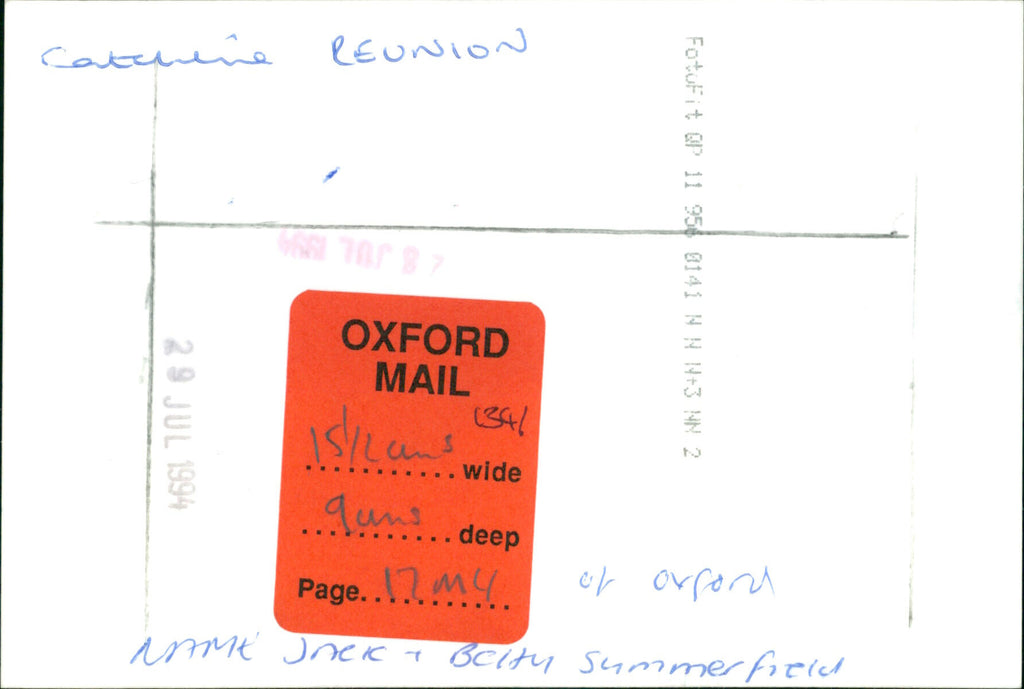 Catchline REUNION
FotoFit QP 11 956 0141 N N N+3 NN 2
28 JUL 1994
29 JUL 1994
OXFORD
MAIL
(34)
15 1/2 cms wide
9cms deep
Page. 17 M4
of Oxford
NAME JACK + Betty Summerfield